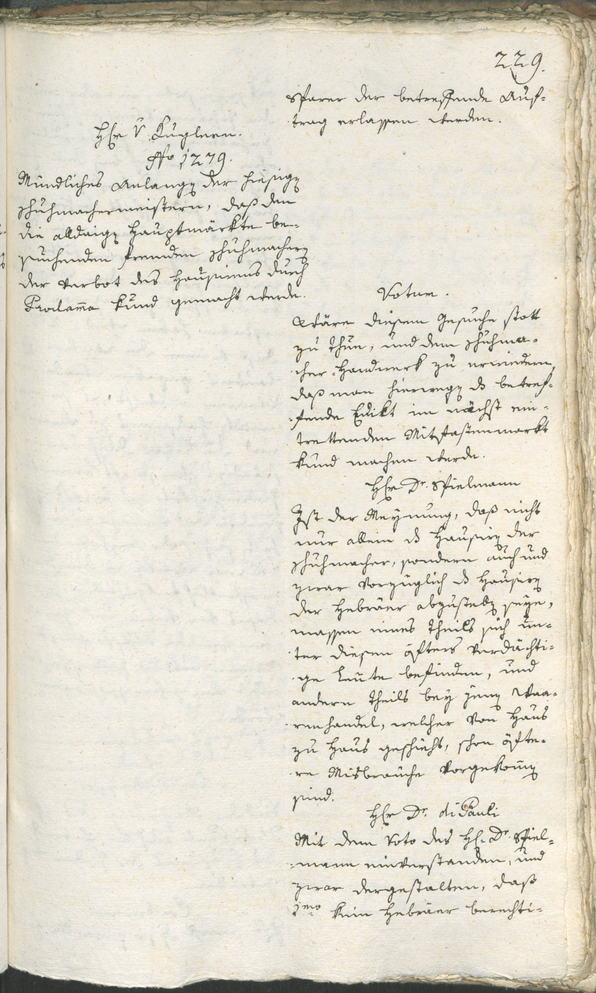 229.
sparer der betreffende Auf-
trag erlassen werden.
H(er) v. Kugleen.
N(ro) 1279.
Mündliches Anlangen der hiesigen
Schuhmachermeistern, daß den
die alldaige Hauptmärkte be-
suchenden fremden Schuhmachern
der Verbot des Hausirens durch
Proclama kund gemacht werde.
Votum.
Wäre diesem Gesuche statt
zu thun, und dem Schuhma-
cher Handwerk zu erwiedern
daß man hierwegen ds betref-
fende Edikt im nächst ein-
trettenden Mitfastenmarkt
kund machen werde.
Hr Dr. Spielmann
Ist der Meynung, daß nicht
nur allein ds Hausiren der
Schuhmacher, sondern auch und
zwar vorzüglich ds Hausiren
der Hebräer abzustellen seye,
massen eines Theils sich un-
ter diesen öfters verdächti-
ge Leute befinden, und
andern Theils bey jenem Waa-
renhandel, welcher von Haus
zu Haus geschieht, schon öfte-
re Misbräuche vorgekommen
sind.
Hr Dr. di Pauli
Mit dem Voto des H. Dr. Spiel-
mann einverstanden, und
zwar dergestalten, daß
1mo kein Hebräer berechti-